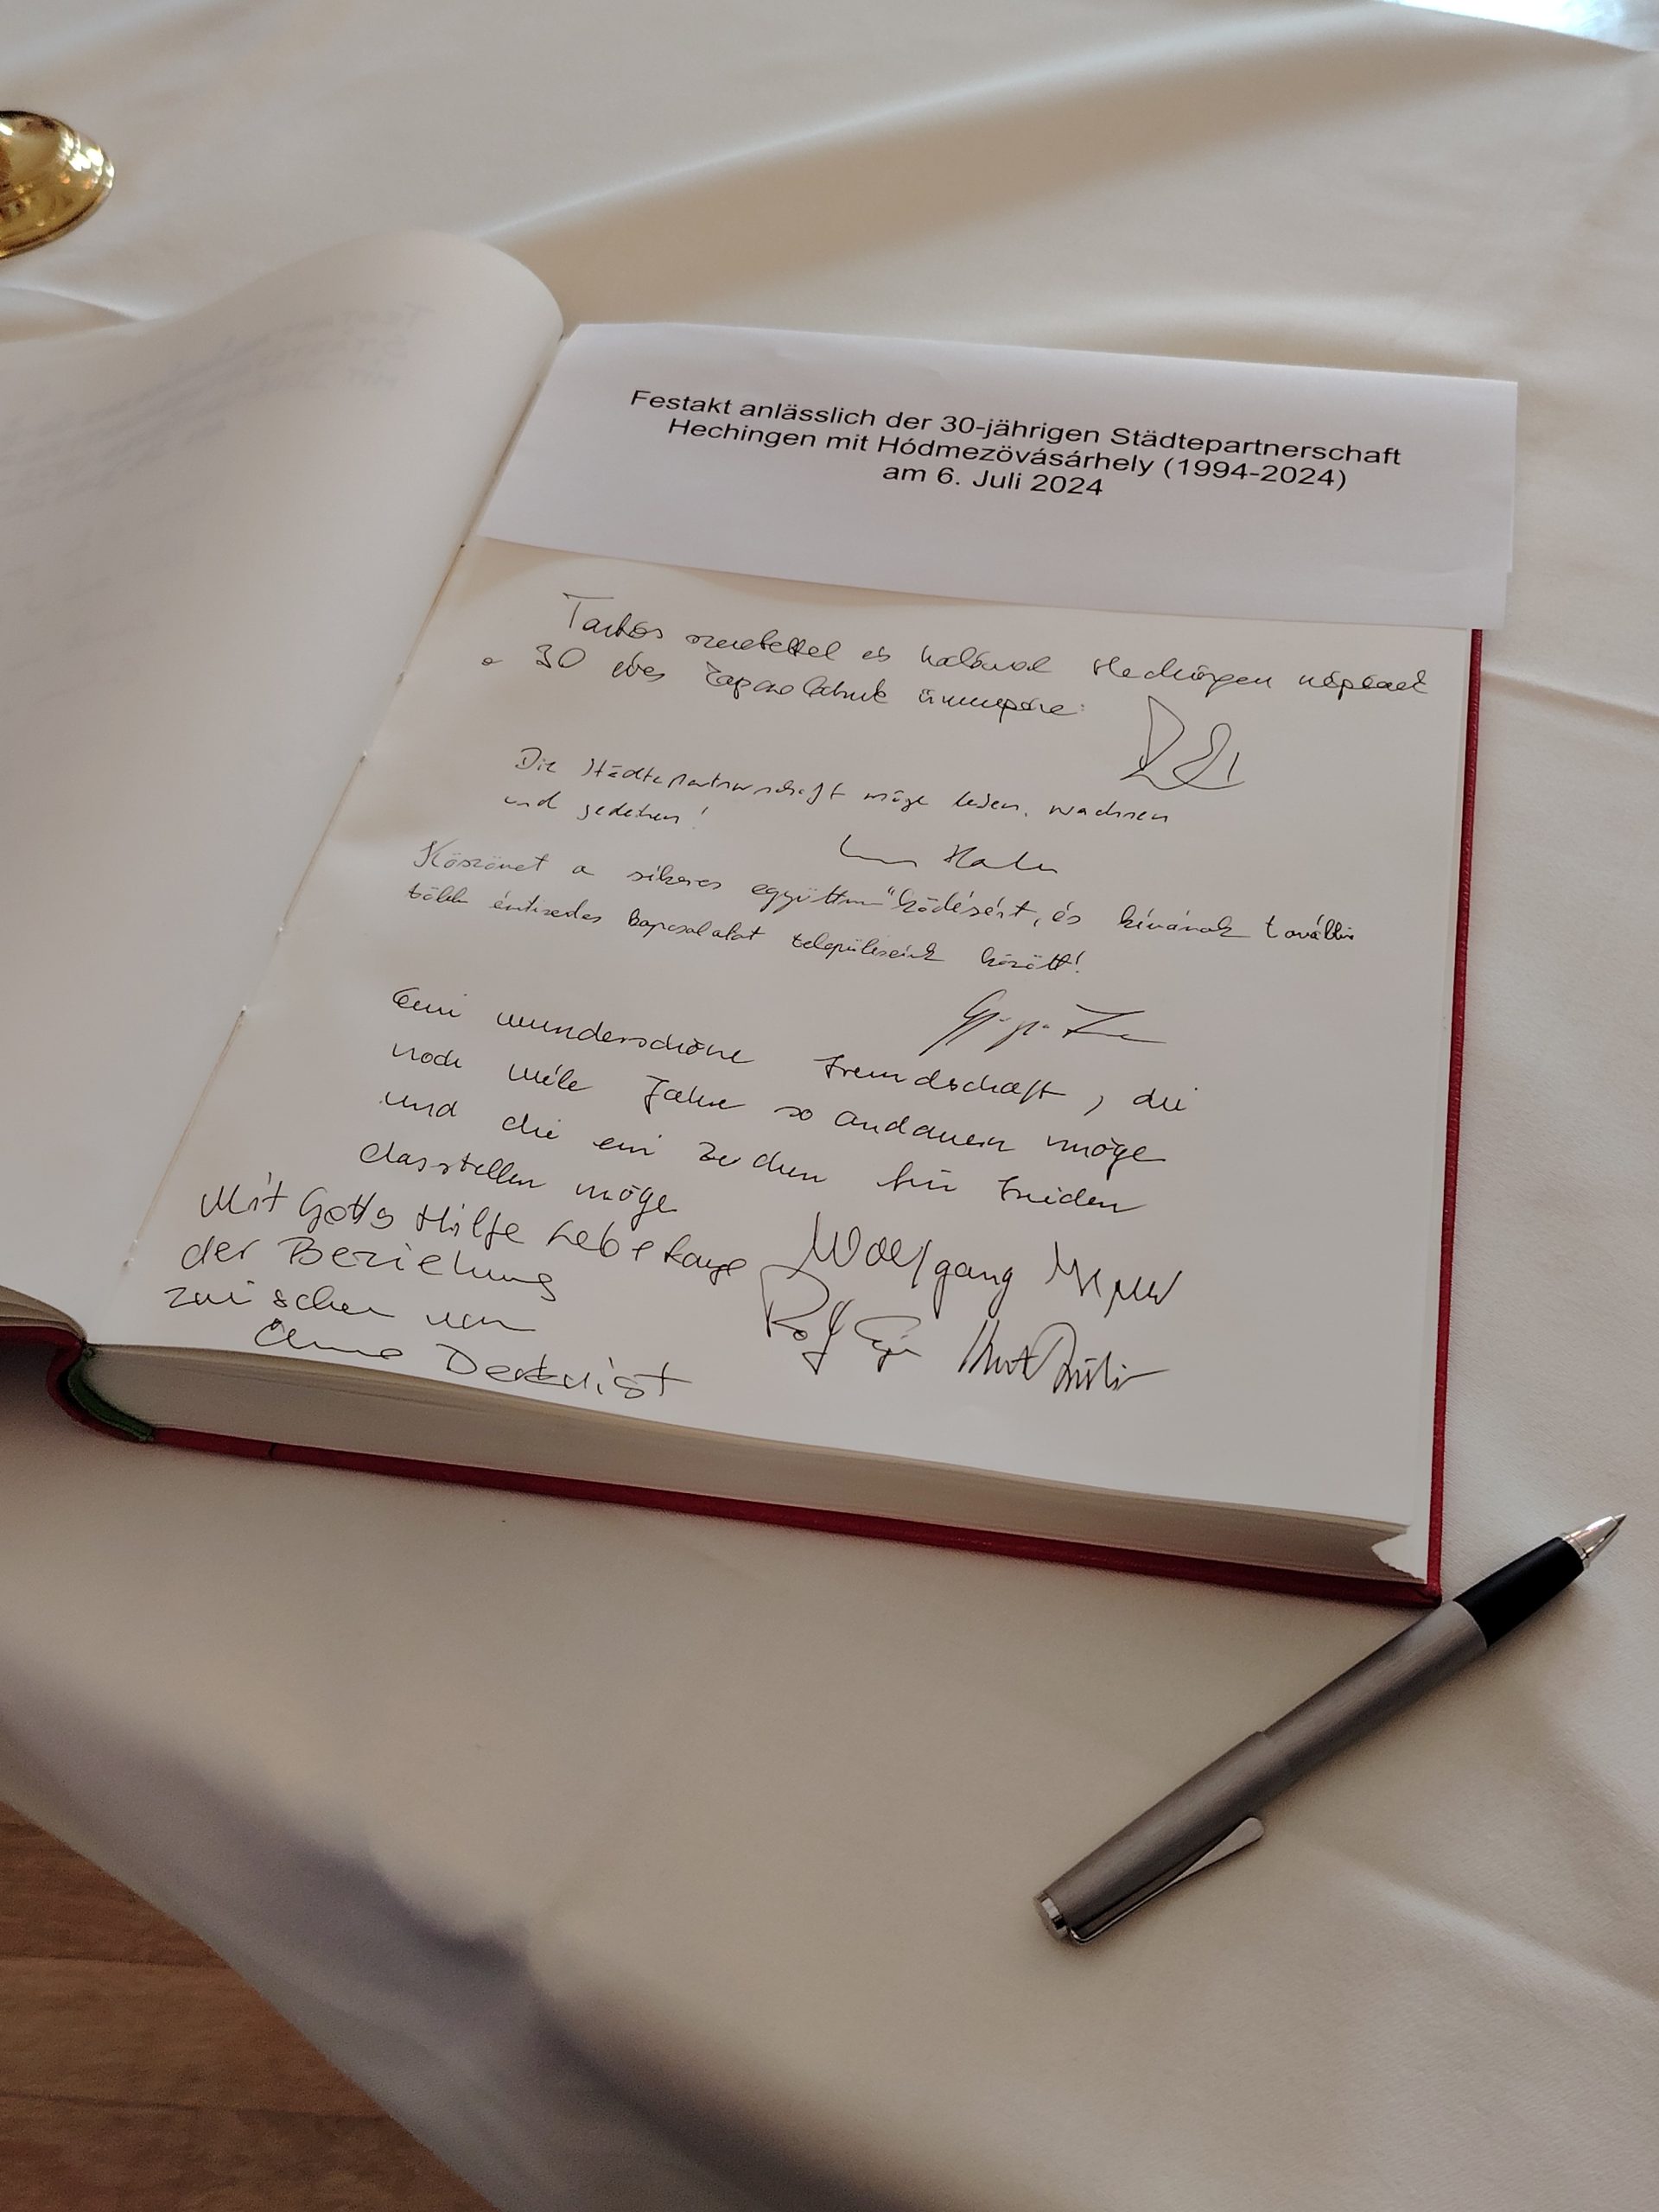 Festakt anlässlich der 30-jährigen Städtepartnerschaft
Hechingen mit Hódmezövásárhely (1994-2024)
am 6. Juli 2024
Tartós szeretettel és hálával Hechingen népének
a 30 éves kapcsolatunk ünnepére
Die Städtepartnerschaft möge leben, wachsen
und gedeihen!
Köszönet a sikeres együttműködésért, és kívánok további
több évtizedes kapcsolatot településeink között!
Eine wunderschöne Freundschaft, die
noch viele Jahre so andauern möge
und die ein Zeichen für Frieden
darstellen möge
Mit Gottes Hilfe lebe lange
der Beziehung
zwischen uns
Wolfgang
Rolf